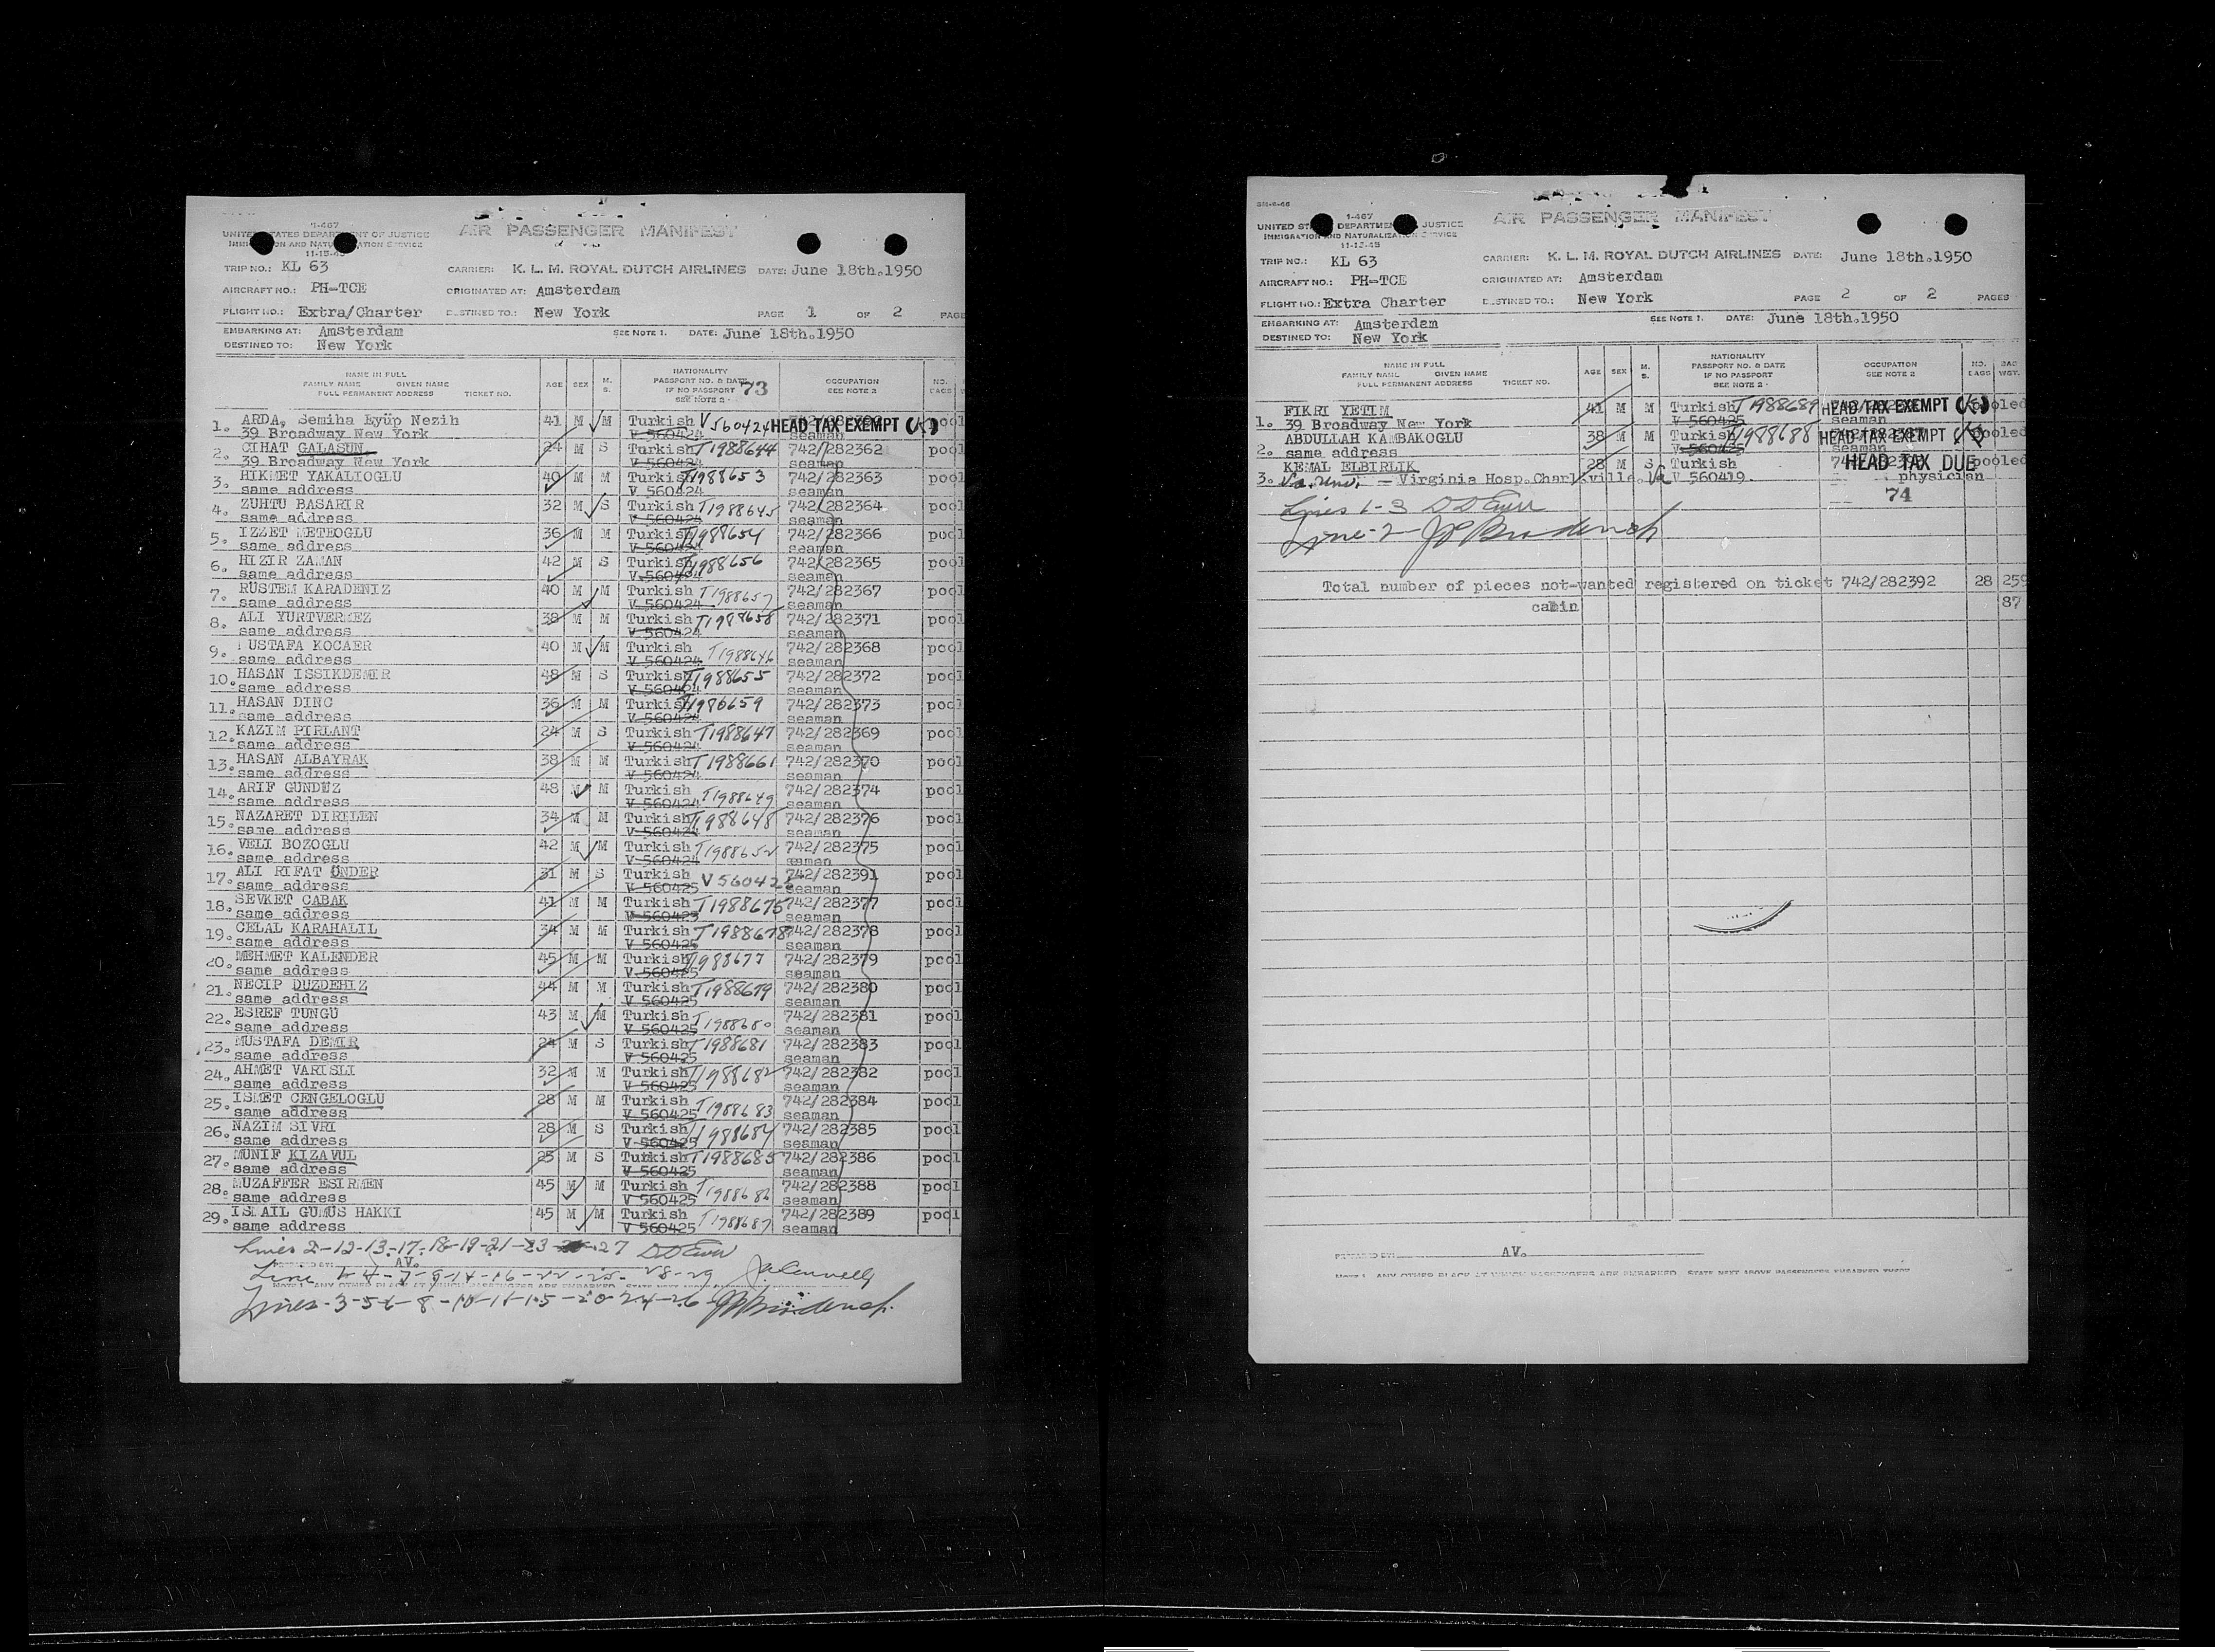 I-467
UNITED STATES DEPARTMENT OF JUSTICE
IMMIGRATION AND NATURALIZATION SERVICE
11-15-45
AIR PASSENGER MANIFEST
TRIP NO.: KL 63 CARRIER: K. L. M. ROYAL DUTCH AIRLINES DATE: June 18th.1950
AIRCRAFT NO.: PH-TCE ORIGINATED AT: Amsterdam
FLIGHT NO.: Extra/Charter DESTINED TO.: New York PAGE 1 OF 2 PAGE
EMBARKING AT: Amsterdam SEE NOTE 1. DATE: June 18th.1950
DESTINED TO: New York
NAME IN FULL
FAMILY NAME GIVEN NAME
FULL PERMANENT ADDRESS TICKET NO.
AGE SEX M. S.
NATIONALITY
PASSPORT NO. & DATE
IF NO PASSPORT
SEE NOTE 2
73
OCCUPATION
SEE NOTE 2
NO. BAGS
1. ARDA, Semiha Eyüp Nezih 41 M M Turkish V560424 HEAD TAX EXEMPT pool
39 Broadway New York V 560424 seaman
2. CIHAT GALASUN 24 M S Turkish T1988644 742/282362 pool
39 Broadway New York V 560424 seaman
3. HIKMET YAKALIOGLU 40 M M Turkish T1988653 742/282363 pool
same address V 560424 seaman
4. ZUHTU BASARIR 32 M S Turkish T1988645 742/282364 pool
same address V 560424 seaman
5. IZZET METEOGLU 36 M M Turkish T1988654 742/282366 pool
same address V 560424 seaman
6. HIZIR ZAMAN 42 M S Turkish T1988656 742/282365 pool
same address V 560424 seaman
7. RÜSTEM KARADENIZ 40 M M Turkish T1988657 742/282367 pool
same address V 560424 seaman
8. ALI YURTVERMEZ 38 M M Turkish T1988658 742/282371 pool
same address V 560424 seaman
9. MUSTAFA KOCAER 40 M M Turkish T1988646 742/282368 pool
same address V 560424 seaman
10. HASAN ISSIKDEMIR 48 M S Turkish T1988655 742/282372 pool
same address V 560424 seaman
11. HASAN DINC 36 M M Turkish T1988659 742/282373 pool
same address V 560424 seaman
12. KAZIM PIRLANT 24 M S Turkish T1988647 742/282369 pool
same address V 560424 seaman
13. HASAN ALBAYRAK 38 M M Turkish T1988661 742/282370 pool
same address V 560424 seaman
14. ARIF GUNDUZ 48 M M Turkish T1988649 742/282374 pool
same address V 560424 seaman
15. NAZARET DIRILEN 34 M M Turkish T1988648 742/282376 pool
same address V 560424 seaman
16. VELI BOZOGLU 42 M M Turkish T1988652 742/282375 pool
same address V 560424 seaman
17. ALI RIFAT ÖNDER 31 M S Turkish V 560425 742/282391 pool
same address V 560425 seaman
18. SEVKET CABAK 41 M M Turkish T1988675 742/282377 pool
same address V 560425 seaman
19. CELAL KARAHALIL 34 M M Turkish T1988678 742/282378 pool
same address V 560425 seaman
20. MEHMET KALENDER 45 M M Turkish T1988677 742/282379 pool
same address V 560425 seaman
21. NECIP DUZDEHIZ 44 M M Turkish T1988679 742/282380 pool
same address V 560425 seaman
22. ESREF TUNGU 43 M M Turkish T1988680 742/282381 pool
same address V 560425 seaman
23. MUSTAFA DEMIR 24 M S Turkish T1988681 742/282383 pool
same address V 560425 seaman
24. AHMET VARISLI 32 M M Turkish T1988682 742/282382 pool
same address V 560425 seaman
25. ISMET CENGELOGLU 28 M M Turkish T1988683 742/282384 pool
same address V 560425 seaman
26. NAZIM SIVRI 28 M S Turkish T1988684 742/282385 pool
same address V 560425 seaman
27. MUNIF KIZAVUL 25 M S Turkish T1988685 742/282386 pool
same address V 560425 seaman
28. MUZAFFER ESIRMEN 45 M M Turkish T1988686 742/282388 pool
same address V 560425 seaman
29. ISMAIL GUMUS HAKKI 45 M M Turkish T1988687 742/282389 pool
same address V 560425 seaman
Lines 2-12-13-17-18-19-21-23 27
PREPARED BY: AV.
Line 4-7-9-14-16-22-25-28-29
Lines-3-5-6-8-10-11-15-20-24-26
I-467
UNITED STATES DEPARTMENT OF JUSTICE
IMMIGRATION AND NATURALIZATION SERVICE
11-15-45
AIR PASSENGER MANIFEST
TRIP NO.: KL 63 CARRIER: K. L. M. ROYAL DUTCH AIRLINES DATE: June 18th.1950
AIRCRAFT NO.: PH-TCE ORIGINATED AT: Amsterdam
FLIGHT NO.: Extra Charter DESTINED TO.: New York PAGE 2 OF 2 PAGES
EMBARKING AT: Amsterdam SEE NOTE 1. DATE: June 18th.1950
DESTINED TO: New York
NAME IN FULL
FAMILY NAME GIVEN NAME
FULL PERMANENT ADDRESS TICKET NO.
AGE SEX M. S.
NATIONALITY
PASSPORT NO. & DATE
IF NO PASSPORT
SEE NOTE 2
OCCUPATION
SEE NOTE 2
NO. BAGS BAG WGT.
1. FIKRI YETIM 41 M M Turkish T1988689 HEAD TAX EXEMPT pooled
39 Broadway New York V 560425 seaman
2. ABDULLAH KAMBAKOGLU 38 M M Turkish T1988688 HEAD TAX EXEMPT pooled
same address V 560425 seaman
3. KEMAL ELBIRLIK 28 M S Turkish HEAD TAX DUE pooled
Va. Univ. - Virginia Hosp.Charlesville. Va V 560419. physician
74
Lines 1-3
Line-2
Total number of pieces not-wanted registered on ticket 742/282392 28 259
cabin 87
PREPARED BY: AV.
NOTE 1. ANY OTHER PLACE AT WHICH PASSENGERS ARE EMBARKED, STATE NEXT ABOVE PASSENGERS EMBARKED THERE